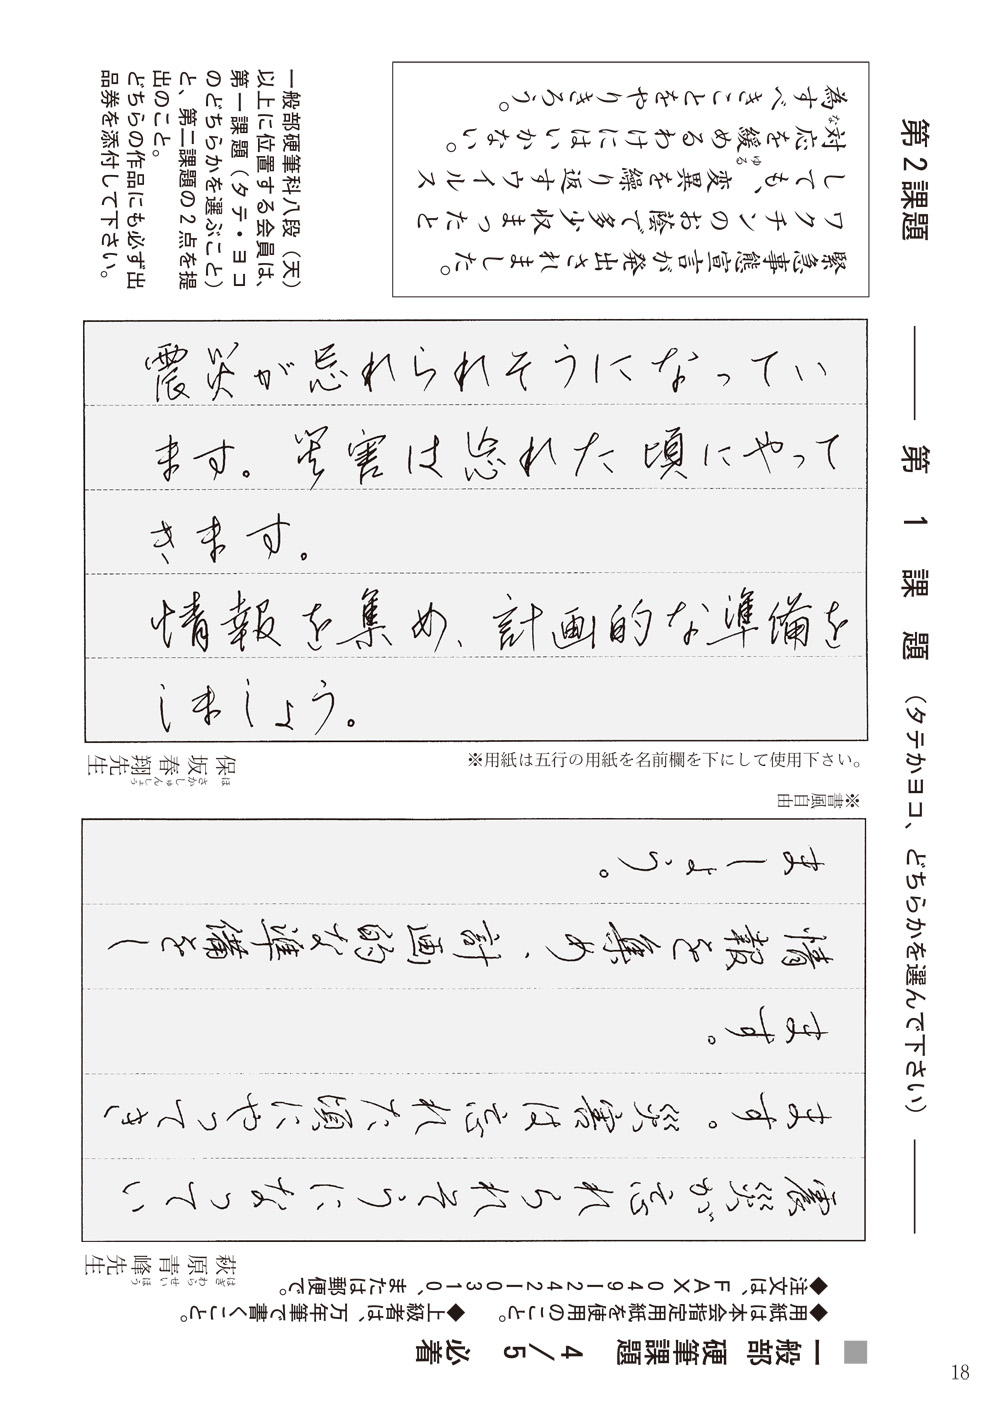 ■ 一般部 硬筆課題 4/5 必着
◆用紙は本会指定用紙を使用のこと。 ◆上級者は、万年筆で書くこと。
◆注文は、FAX 0491242-0310、または郵便で。
第2課題
緊急事態宣言が発出されました。
ワクチンのお蔭で多少収まったと
しても、変異を繰り返すウイルス
対応を緩めるわけにはいかない。
ゆる
為すべきことをやりきろう。
な
一般部硬筆科八段(天)
以上に位置する会員は、
第一課題(タテ・ヨコ
のどちらかを選ぶこと)
と、第二課題の2点を提
出のこと。
どちらの作品にも必ず出
品券を添付して下さい。
第1課題(タテかヨコ、どちらかを選んで下さい)
震災が忘れられそうになってい
ます。災害は忘れた頃にやって
きます。
情報を集め、計画的な準備を
しましょう。
※用紙は五行の用紙を名前欄を下にして使用下さい。
保坂春翔先生
ほさかしゅんしょう
※書風自由
震災が忘れられそうになってい
ます。災害は忘れた頃にやってき
ます。
情報を集め、計画的な準備をし
ましょう。
萩原青峰先生
はぎわらせいほう
18